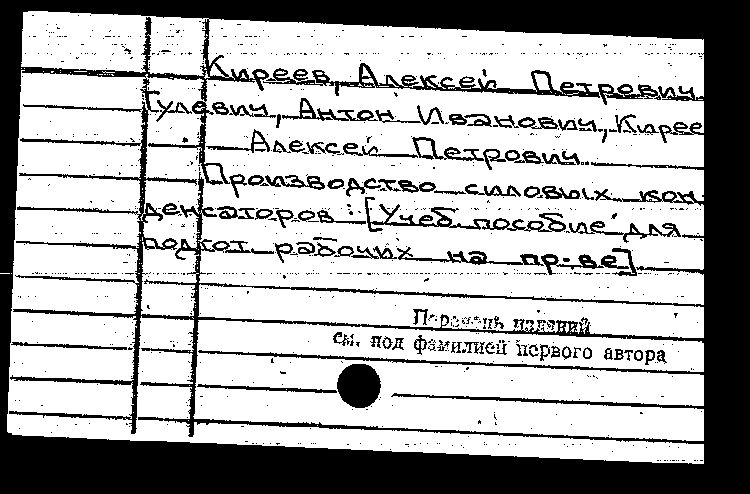 Киреев, Алексей Петрович.
Гулевич, Антон Иванович, Кирее
Алексей Петрович.
Производство силовых кон-
денсаторов : [Учеб. пособие для
подгот. рабочих на пр-ве].
Перечень изданий
см. под фамилией первого автора